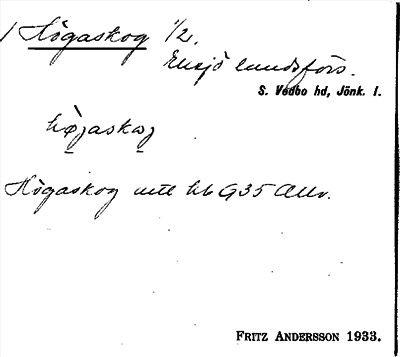 / Högaskog 1/2.
Eksjö landsförs.
S. Vedbo hd, Jönk. l.
Högaskog mtl hb G35 Allv.
FRITZ ANDERSSON 1933.